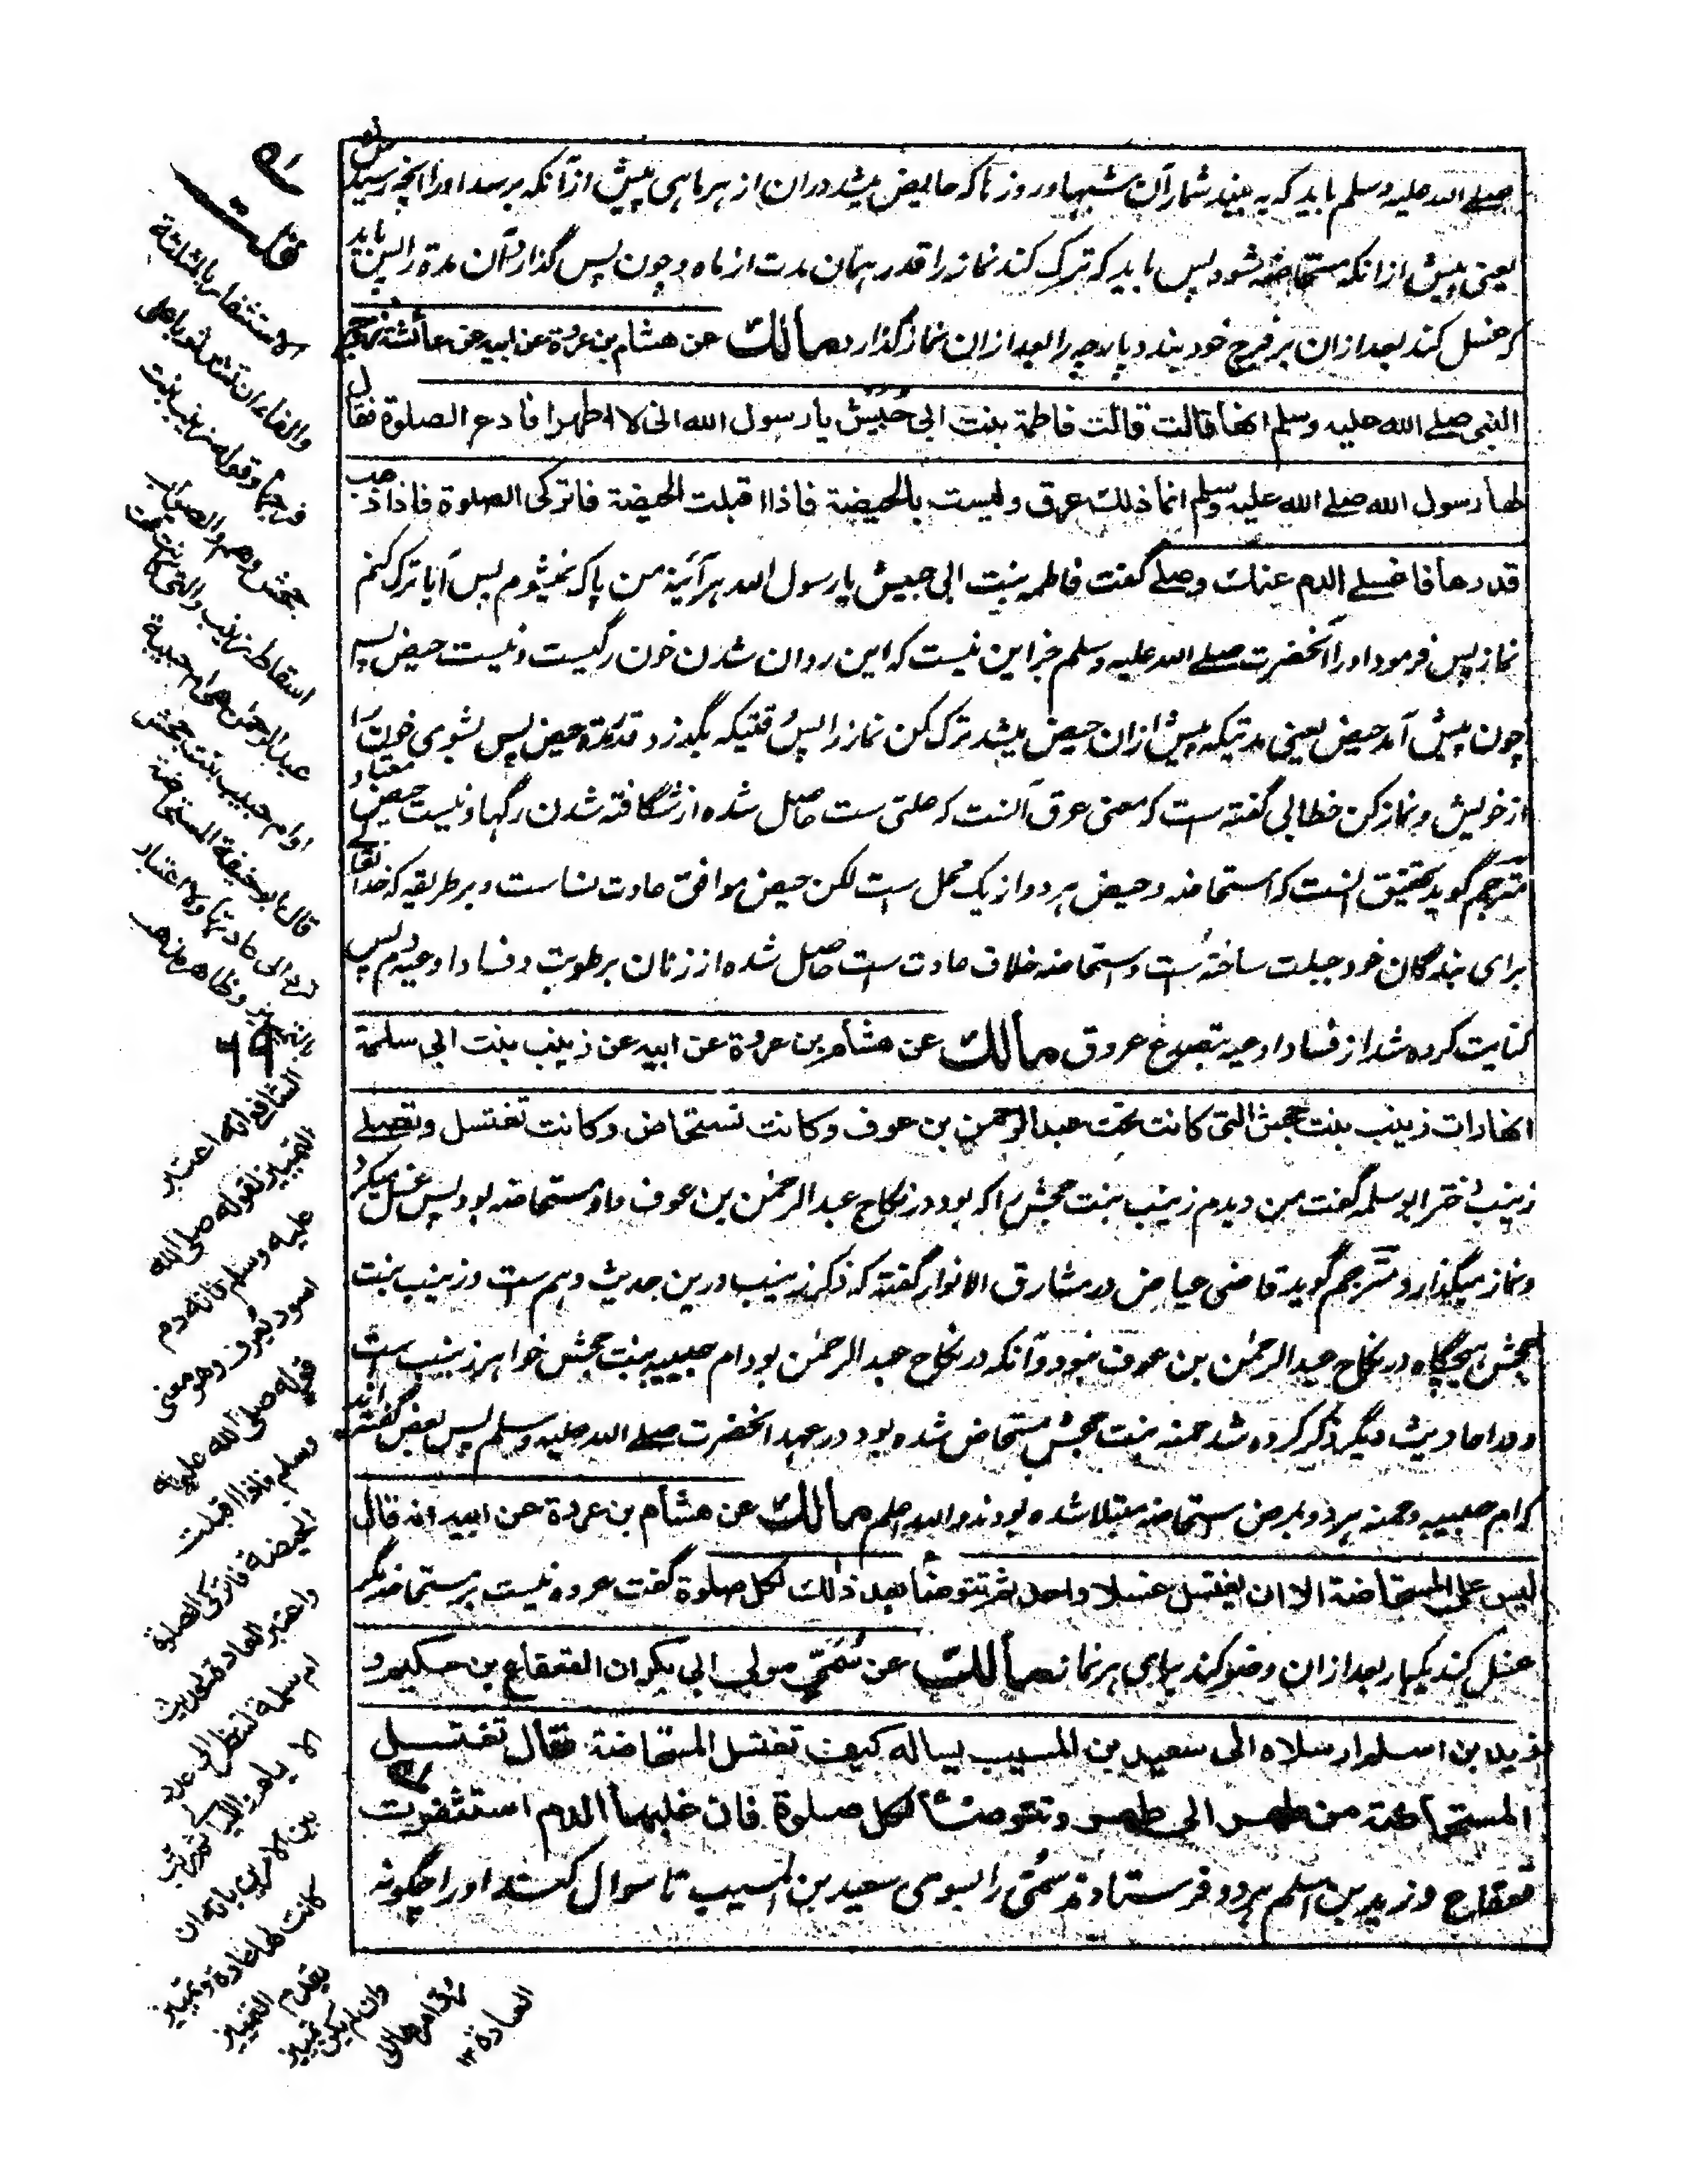 صلے الله علیه وسلم باید که به بیند شمار آن شبها و روزها که حایض میشد دران از هر ماهی پیش ازآنکه برسد اورا انچه رسید
یعنی پیش ازانکه مستحاضه شود پس باید که ترک کند نماز را قدر همان مدت از ماه و چون پس گذارد آن مدة را پس باید
که غسل کند بعد ازان بر فرج خود بندد پارچه را بعد ازان نماز گذارد مالك عن هشام بن عروة عن ابیه عن عائشة زوج
النبی صلے الله علیه وسلم انها قالت قالت فاطمة بنت ابی حبیش یا رسول الله انی لا اطهر افادع الصلوة فقال
لها رسول الله صلے الله علیه وسلم انما ذلك عرق ولیست بالحیضة فاذا اقبلت الحیضة فاترکی الصلوة فاذا ذهب
قدرها فاغسلے الدم عنك وصلے گفت فاطمه بنت ابی حبیش یا رسول الله هر آئینه من پاک نمیشوم پس آیا ترک کنم
نماز پس فرمود اورا آنحضرت صلے الله علیه وسلم جز این نیست که این روان شدن خون رگیست و نیست حیض پس
چون پیش آمد حیض یعنی مدتیکه پیش ازان حیض میشد ترک کن نماز را پس وقتیکه بگذرد قدر مدة حیض پس بشوی خون را
از خویش و نماز کن خطابی گفته است که معنی عرق آنست که علتی ست حاصل شده از شگافته شدن رگها و نیست حیض معتاد
مترجم گوید تحقیق انست که استحاضه و حیض هر دو از یک محل ست لکن حیض موافق عادت نساست و بر طریقه که خدا تعالے
برای بندگان خود جبلت ساخته ست و استحاضه خلاف عادت ست حاصل شده از زنان برطوبت و فساد اوعیه دم پس
کنایت کرده شد از فساد اوعیه بتصدع عروق مالك عن هشام بن عروة عن ابیه عن زینب بنت ابی سلمة
انها رات زینب بنت جحش التی کانت تحت عبد الرحمن بن عوف وکانت تستحاض وکانت تغتسل وتصلے
زینب دختر ابوسلمه گفت من دیدم زینب بنت جحش را که بود در نکاح عبد الرحمن بن عوف و او مستحاضه بود پس غسل میکرد
و نماز میگذارد مترجم گوید قاضی عیاض در مشارق الانوار گفته که ذکر زینب درین حدیث وهم ست و زینب بنت
جحش هیچگاه در نکاح عبد الرحمن بن عوف نبود و آنکه در نکاح عبد الرحمن بود ام حبیبه بنت جحش خواهر زینب ست
و در احادیث دیگر ذکر کرده شد حمنه بنت جحش مستحاض شده بود در عهد انحضرت صلے الله علیه وسلم پس بعض گفته اند
که ام حبیبه و حمنه هر دو بمرض استحاضه مبتلا شده بودند والله اعلم مالك عن هشام بن عروة عن ابیه انه قال
لیس علی المستحاضة الا ان تغتسل غسلا واحدا ثم تتوضأ بعد ذلك لکل صلوة گفت عروه نیست بر مستحاضه مگر
غسل کند یکبار بعد ازان وضو کند برای هر نماز مالك عن سُمَیّ مولی ابی بکر ان القعقاع بن حکیم و
زید بن اسلم ارسلاه الی سعید بن المسیب یساله کیف تغتسل المستحاضة فقال تغتسل
المستحاضة من طهر الی طهر وتتوضأ لکل صلوة فان غلبها الدم استثفرت
قعقاع و زید بن اسلم هر دو فرستادند سُمَیّ را بسوی سعید بن المسیب تا سوال کند اورا چگونه
قلت
الاستثفار بالمثلثة
والفاء ان تشد ثوبا علی
فرجها وقوله زینب بنت
جحش وهم والصواب
اسقاط زینب والتی کانت تحت
عبد الرحمن هی ام حبیبة
او ام حبیب بنت جحش
قال ابو حنیفة المستحاضة
ترد الی عادتها ولا اعتبار
بالتمییز وظاهر مذهب
٦٩
الشافعی انه اعتبر
التمییز لقوله صلی الله
علیه وسلم فانه دم
اسود یعرف وهو معنی
قوله صلی الله علیه
وسلم فاذا اقبلت
الحیضة فاترکی الصلوة
واعتبر العادة لحدیث
ام سلمة لتنظر الی عدد
کانت لها عادة وتمییز
یقدم التمییز
وان لم یکن تمییز
العادة ١٢